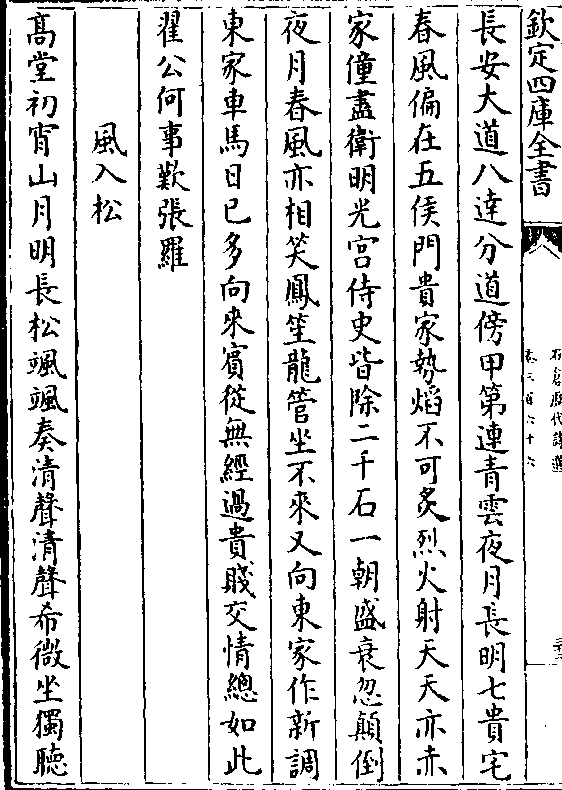 欽定四庫全書
石倉歴代詩選
卷三百六十六
長安大道八達分道傍甲第連青雲夜月長明七貴宅
春風偏在五侯門貴家勢焰不可炙烈火射天天亦赤
家僮盡衛明光宫侍史皆除二千石一朝盛衰忽顛倒
夜月春風亦相笑鳳笙龍管坐不來又向東家作新調
東家車馬日已多向來賓從無經過貴賤交情總如此
翟公何事歎張羅
風入松
髙堂初宵山月明長松颯颯奏清聲清聲希微坐獨聽